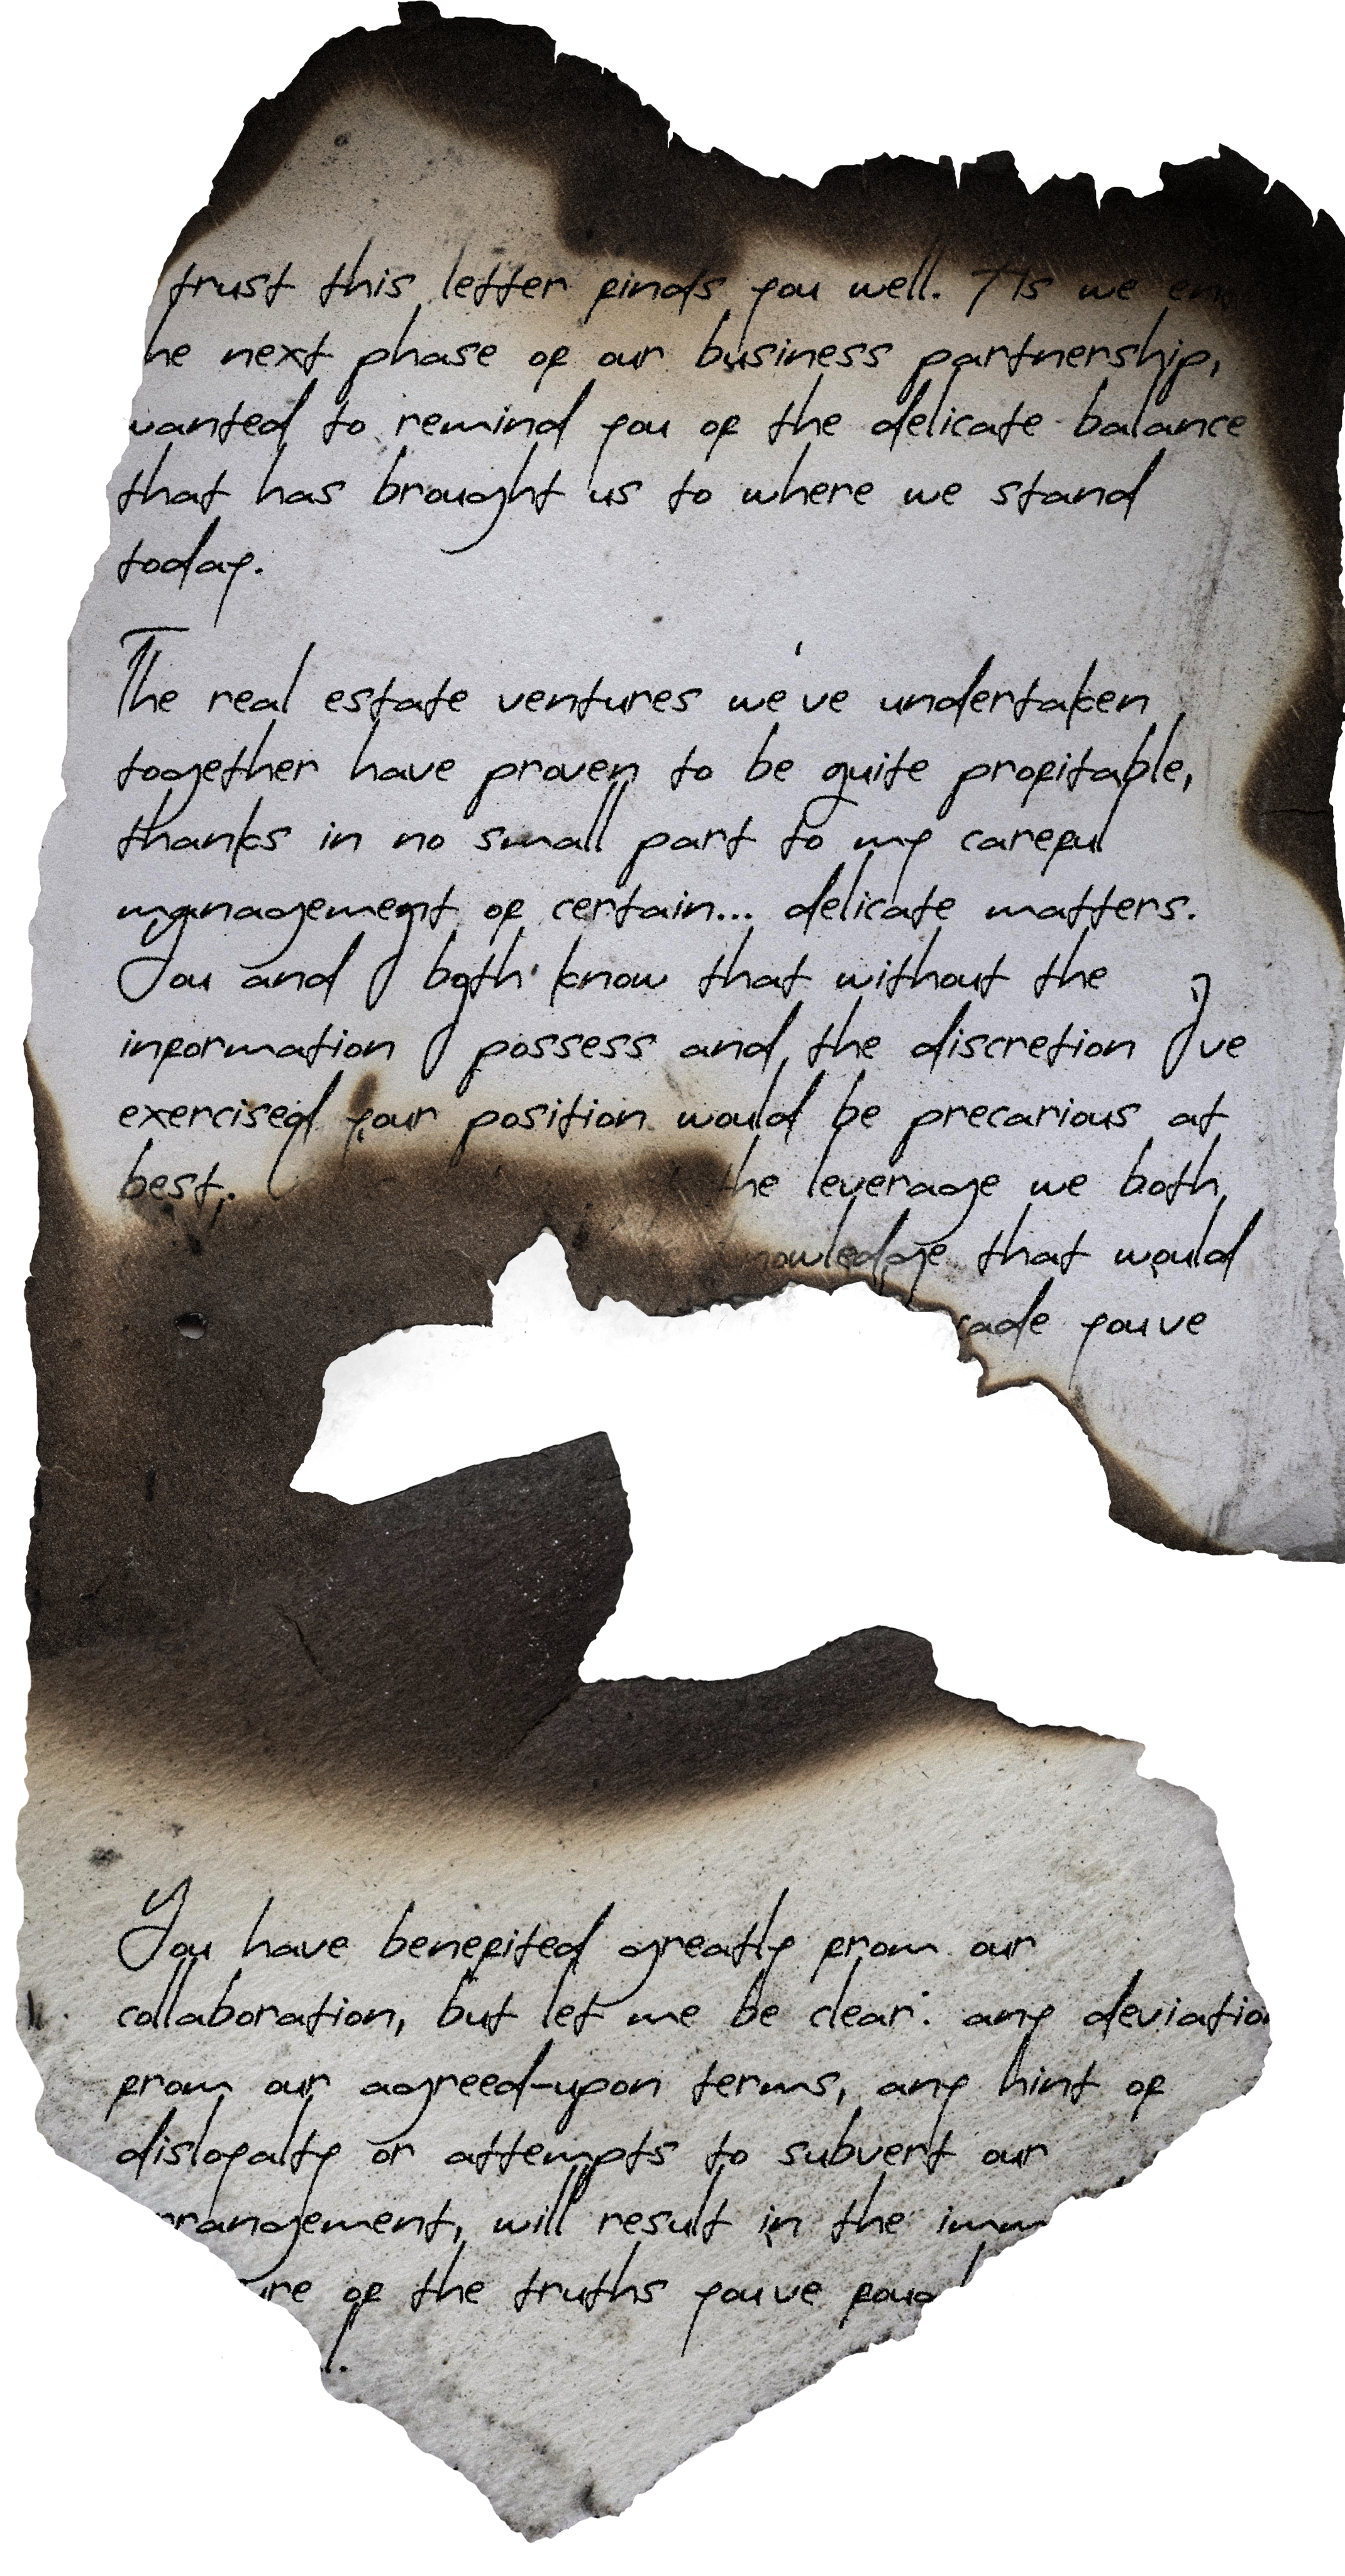 trust this letter finds you well. As we
he next phase of our business partnership,
wanted to remind you of the delicate balance
that has brought us to where we stand
today.
The real estate ventures we've undertaken
together have proven to be quite profitable,
thanks in no small part to my careful
management of certain... delicate matters.
You and I both know that without the
information I possess and the discretion I've
exercised your position would be precarious at
best.
he leverage we both
nowledge that would
cade you've
You have benefited greatly from our
collaboration, but let me be clear: any deviatio
from our agreed-upon terms, any hint of
disloyalty or attempts to subvert our
rrangement, will result in the imm
ure of the truths you've foug